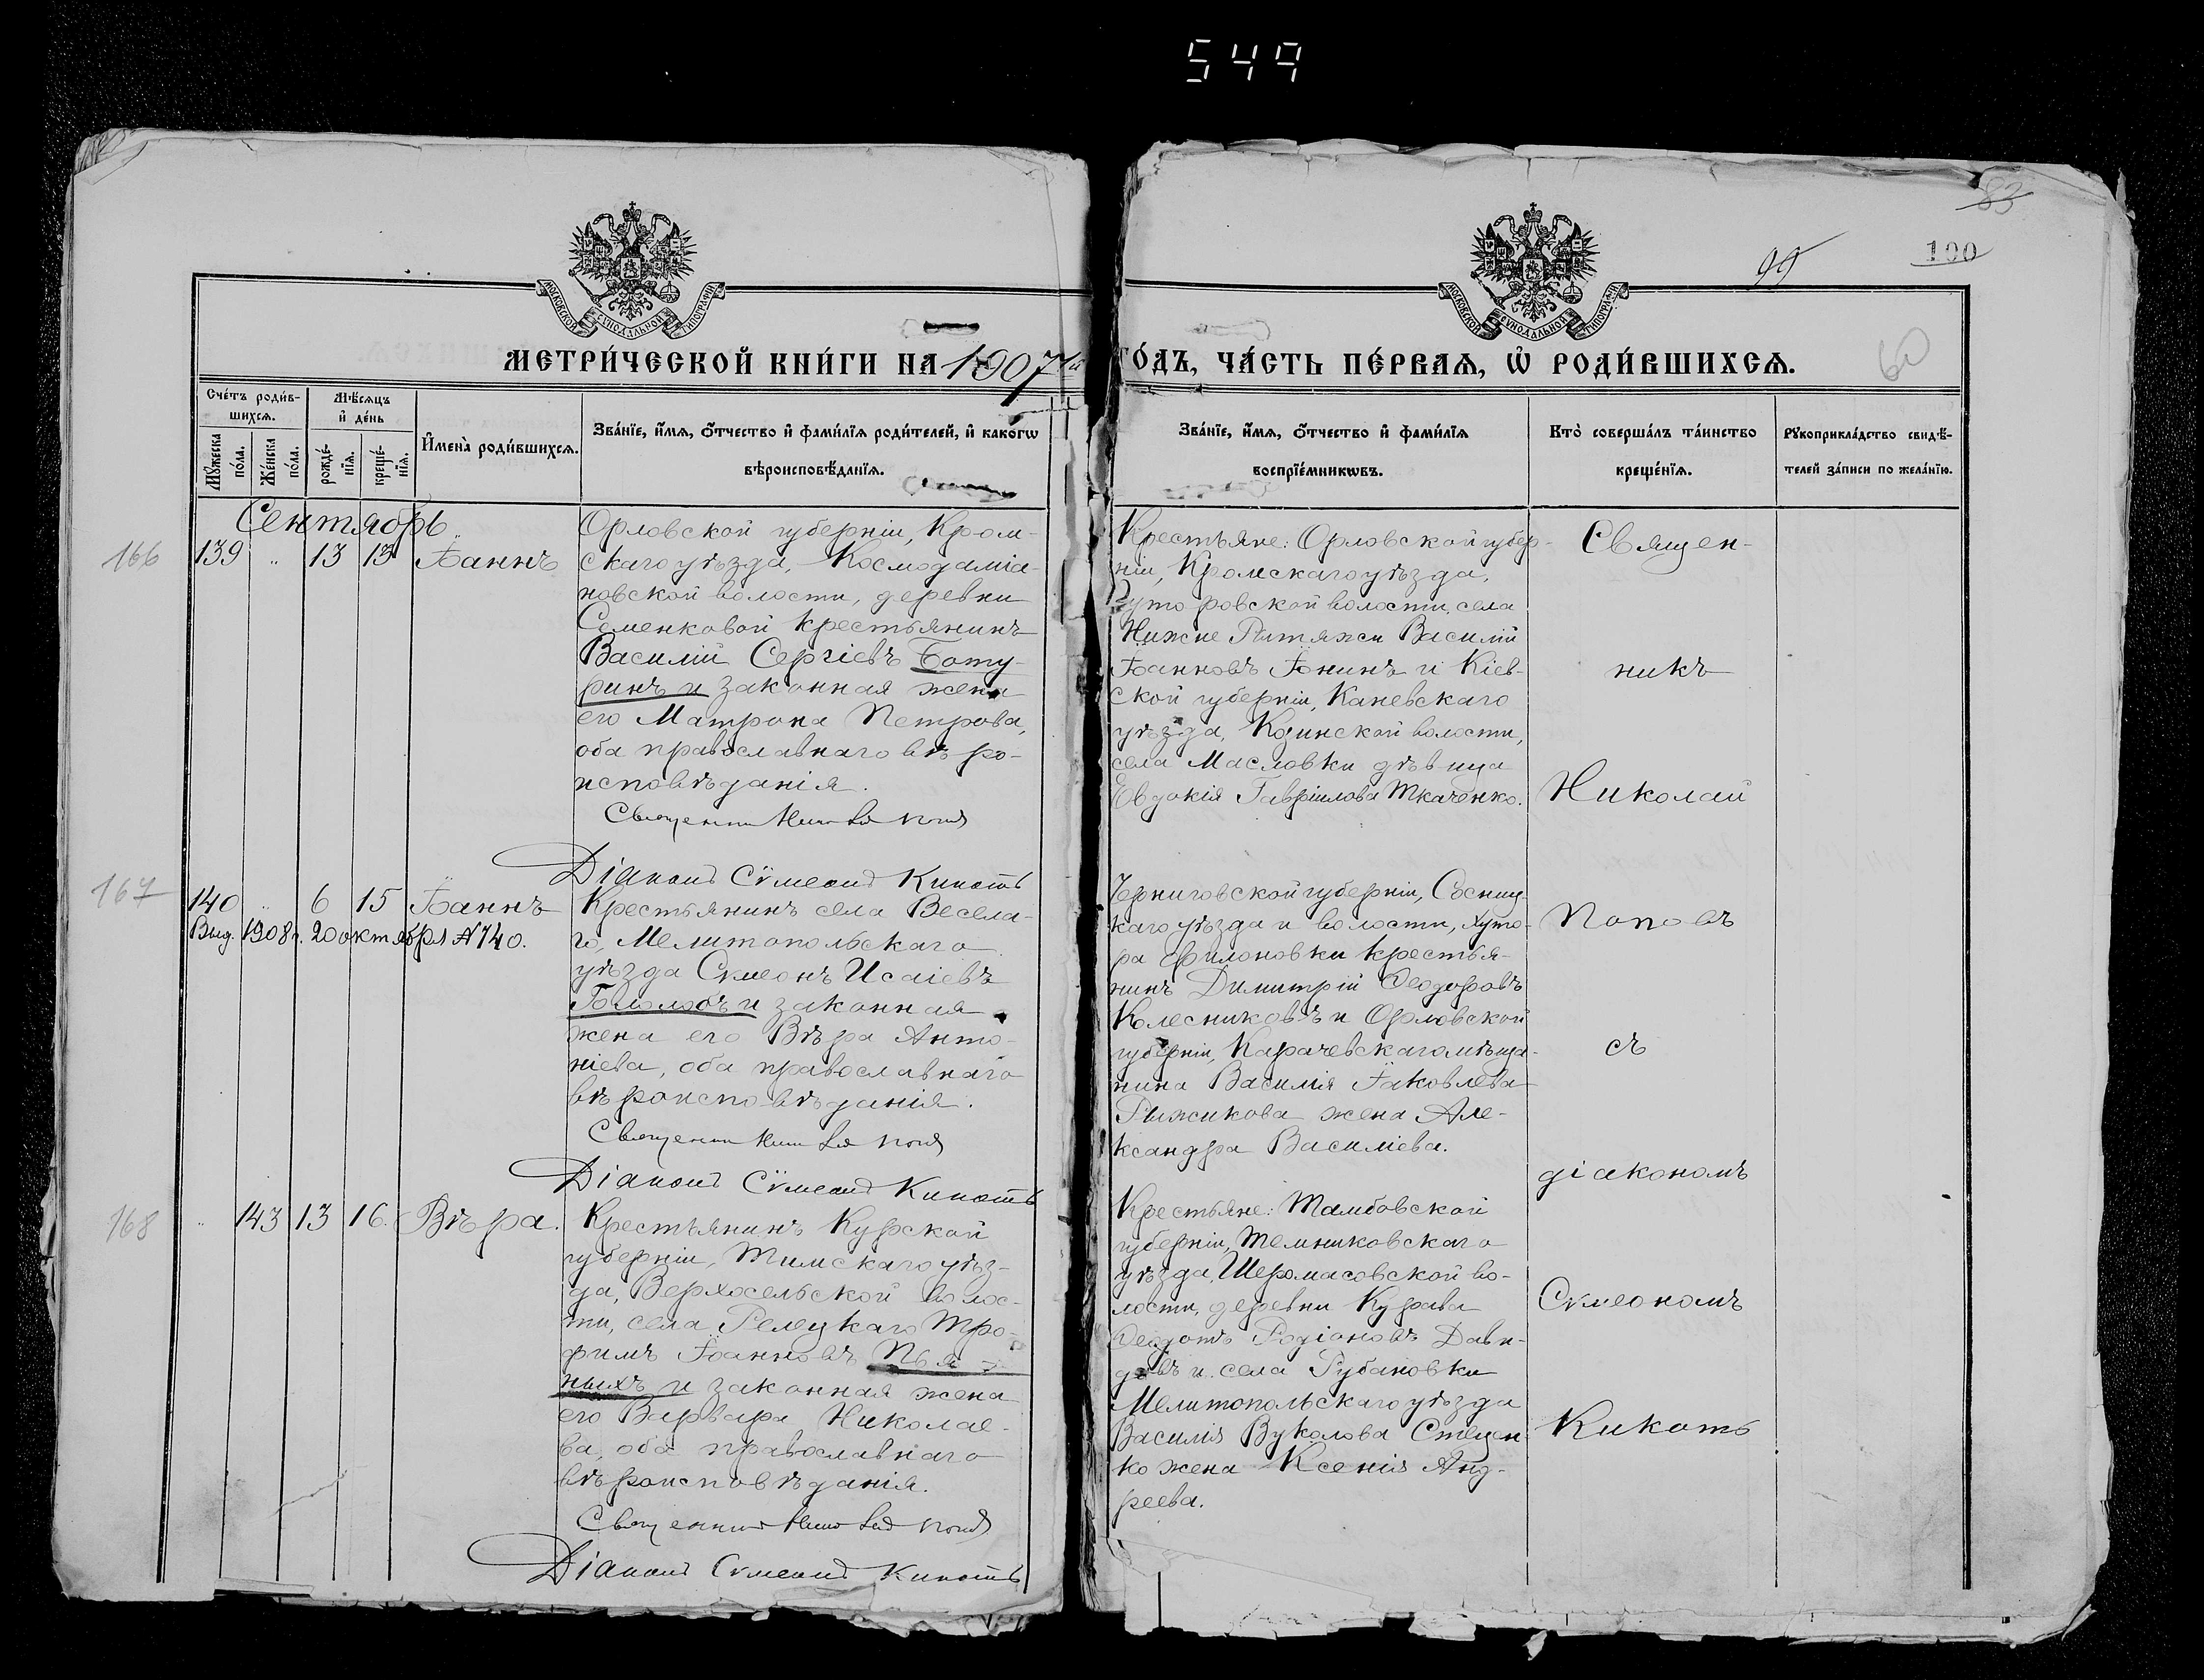 549
83
99
100
60
МОСКОВСКОЙ СѴНОДАЛЬНОЙ ТИПОГРАФІИ
МОСКОВСКОЙ СѴНОДАЛЬНОЙ ТИПОГРАФІИ
МЕТРИ́ЧЕСКОЙ КНИ́ГИ НА 1907й
ГО́ДЪ, ЧА́СТЬ ПЕ́РВАѦ, Ѡ҆ РОДИ́ВШИХСѦ.
Сче́тъ роди́в-
шихсѧ.
Мѣ́сѧцъ
и҆ де́нь
Мꙋ́жеска
по́ла.
Же́нска
по́ла.
рожде́-
нїѧ.
креще́-
нїѧ.
И҆мена̀ роди́вшихсѧ.
Зва́нїе, и҆́мѧ, ѻ҆́тчество и҆ фами́лїѧ роди́телей, и҆ како́гѡ
вѣроисповѣ́данїѧ.
Зва́нїе, и҆́мѧ, ѻ҆́тчество и҆ фами́лїѧ
воспрїе́мникѡвъ.
Кто̀ соверша́лъ та́инство
креще́нїѧ.
Рꙋкоприкла́дство свидѣ́-
телей за́писи по жела́нїю.
Сентябрь
166
139 " 13 13 Іоаннъ
Орловской губерніи, Кром-
скаго уѣзда, Космодаміа-
новской волости, деревни
Семенковой крестьянинъ
Василій Сергіевъ Боту-
ринъ и законная жена
его Матрона Петрова,
оба православнаго вѣро-
исповѣданія.
Священникъ Николай Поповъ
Діаконъ Сѵмеонъ Кикоть
Крестьяне: Орловской губер-
ніи, Кромскаго уѣзда,
волости, села
Нижне Василій
Іоанновъ Іонинъ и Кіев-
ской губерніи, Каневскаго
уѣзда, Козинской волости,
села Масловки дѣвица
Евдокія Гавріилова Ткаченко.
167
140 " 6 15 Іоаннъ
Выд. 1908 г. 20 октября № 740.
Крестьянинъ села Весела-
го, Мелитопольскаго
уѣзда Сѵмеонъ Исаіевъ
и законная
жена его Вѣра Анто-
ніева, оба православнаго
вѣроисповѣданія.
Священникъ Николай Поповъ
Діаконъ Сѵмеонъ Кикоть
Черниговской губерніи, Сосниц-
каго уѣзда и волости, хуто-
ра Филоновки крестья-
нинъ Димитрій Ѳеодоровъ
Колесниковъ и Орловской
губерніи, Карачевскаго мѣща-
нина Василія Іаковлева
Рыжикова жена Але-
ксандра Василіева.
168
" 143 13 16. Вѣра.
Крестьянинъ Курской
губерніи, Тимскаго уѣз-
да, Верхосельской волос-
ти, села Релецкаго Тро-
фимъ Іоанновъ Пья-
ныхъ и законная жена
его Варвара Николае-
ва, оба православнаго
вѣроисповѣданія.
Священникъ Николай Поповъ
Діаконъ Сѵмеонъ Кикоть
Крестьяне: Тамбовской
губерніи, Темниковскаго
уѣзда, Шеромасовской во-
лости, деревни
Ѳеодотъ Родіоновъ Давы-
довъ и села Рубановки
Мелитопольскаго уѣзда
Василія Вуколова Стецен-
ко жена Ксенія Анд-
реева.
Священ-
никъ
Николай
Поповъ
съ
діакономъ
Сѵмеономъ
Кикоть